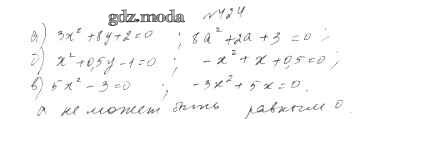 gdz.moda № 424
а) 3x² + 8y + 2 = 0 ; 8a² + 2a + 3 = 0 ;
б) x² + 0,5y - 1 = 0 ; -x² + x + 0,5 = 0 ;
в) 5x² - 3 = 0 ; -3x² + 5x = 0.
а не может быть равным 0.